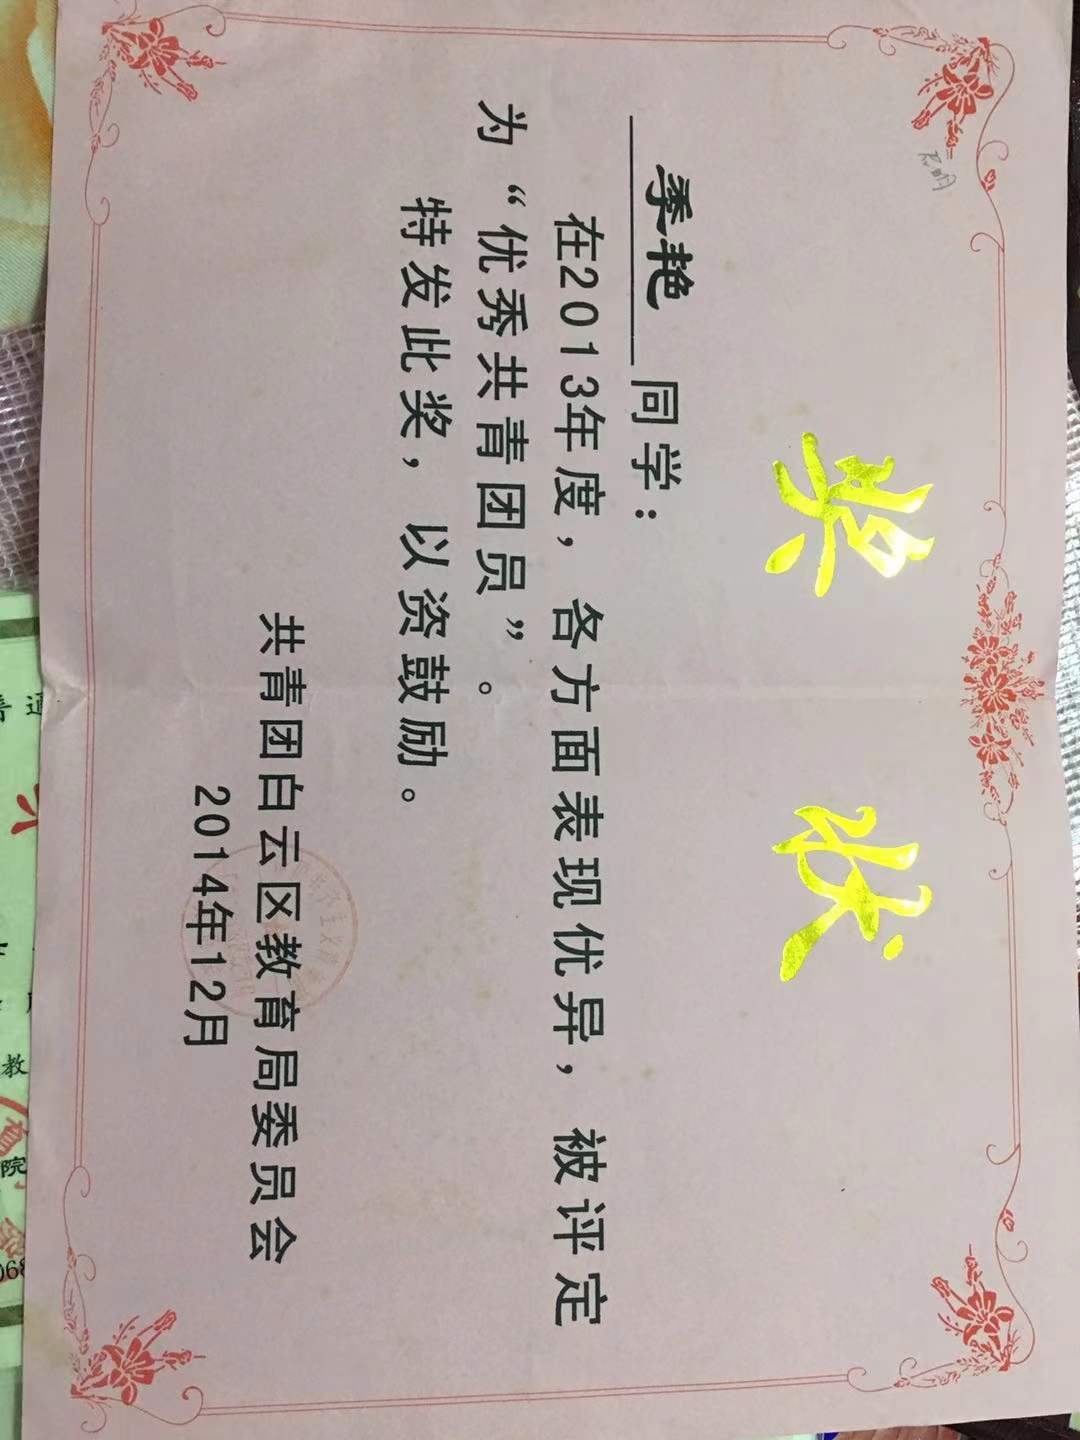 奖状
季艳同学：
在2013年度，各方面表现优异，被评定
为“优秀共青团员”。
特发此奖，以资鼓励。
共青团白云区教育局委员会
2014年12月
普通
教
院
068